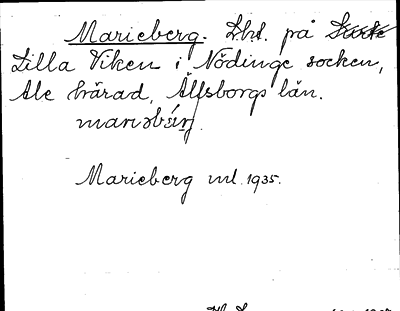 Marieberg. Lht. på
Lilla Viken i Nödinge socken,
Ale härad, Älfsborgs län.
Marieberg ml 1935.